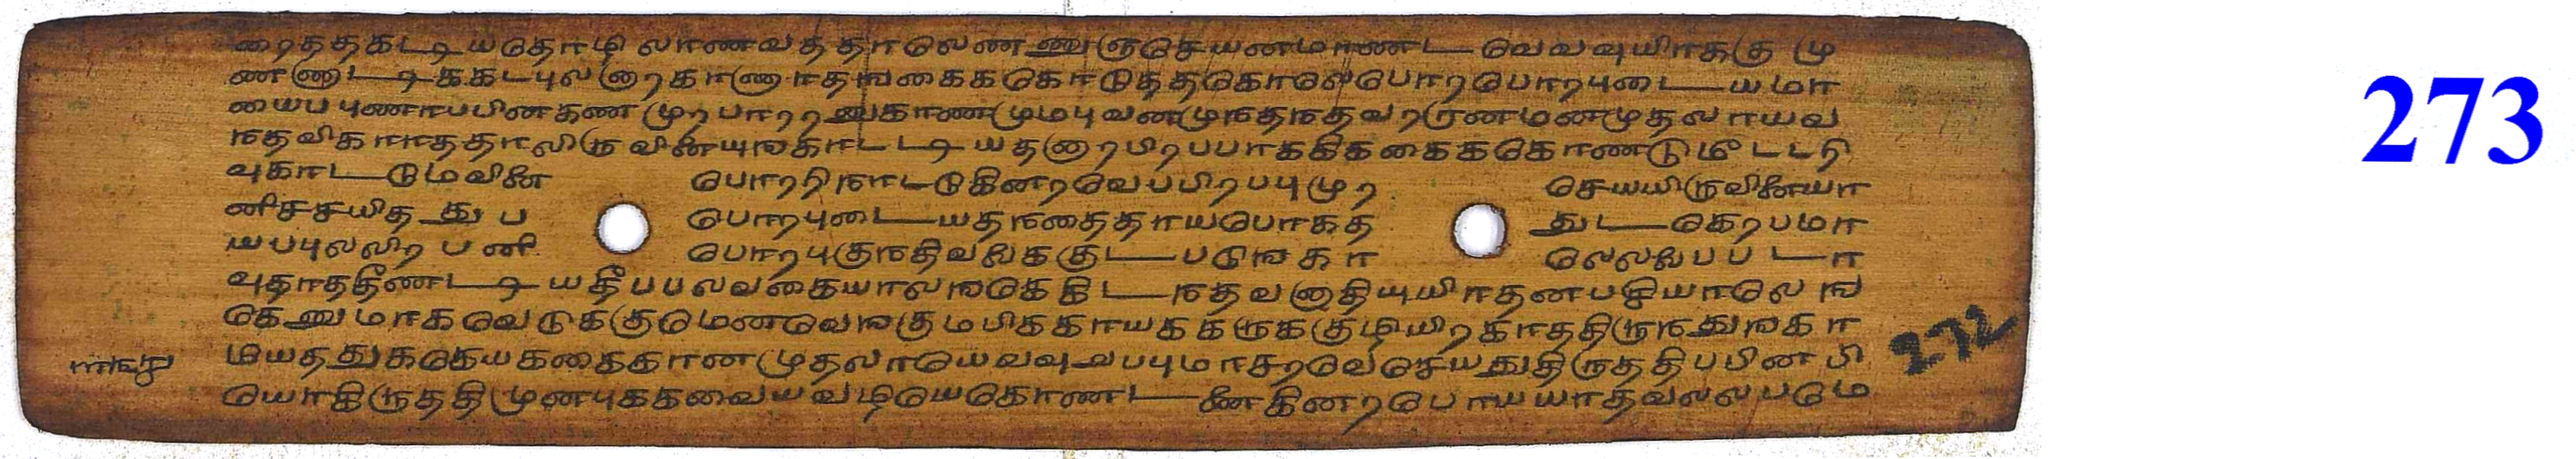 ரைததகடடியதொழிலாணவததாலெண ணுஞசெயனமாணட வெவவுயிாககு மு
ணணூடடிககடபுலனுரகாணாதஙகைககொடுததகொலபொரபொரபுடையமா
யைபபுணாபபினகண முற பாரரறுகாணமுமபுவனமுநதநதவரரனமனமுதலாயவ
நதவிகாாததாலிருவினையுஙகாடடடியதனுரபிரபபாககிககைககொணடுமீடடடு
வுகாடடுமவினை பொரரிநாடடுகினரவெபபிரபபுமுர செயயிருவினையா
னிசசயிதது ப பொரபுடையதநதைதாயபொகத துடகெரபமா
யபபுலலிர பனி பொரபுகுநதிவவேககுடபடுஙகா லெலலபேபபடா
வுதாததீணடடியதீபபலவகையாலஙகெகிடநதவனாதியுயிாதனபசியாலெங
கெணுமாகவெடுககுமெணவெஙகுமபிககாயககருககுழியிரகாததிருநதுஙகா
மியததுககெயககைகானமுதலாயெவவுவபபுமாசரவெசெயதுதிருததிபபினபி
யொகிருததிமுனபுககவையவழியெகொணடணைகினரபொயயாதவலலபமெ
272
273